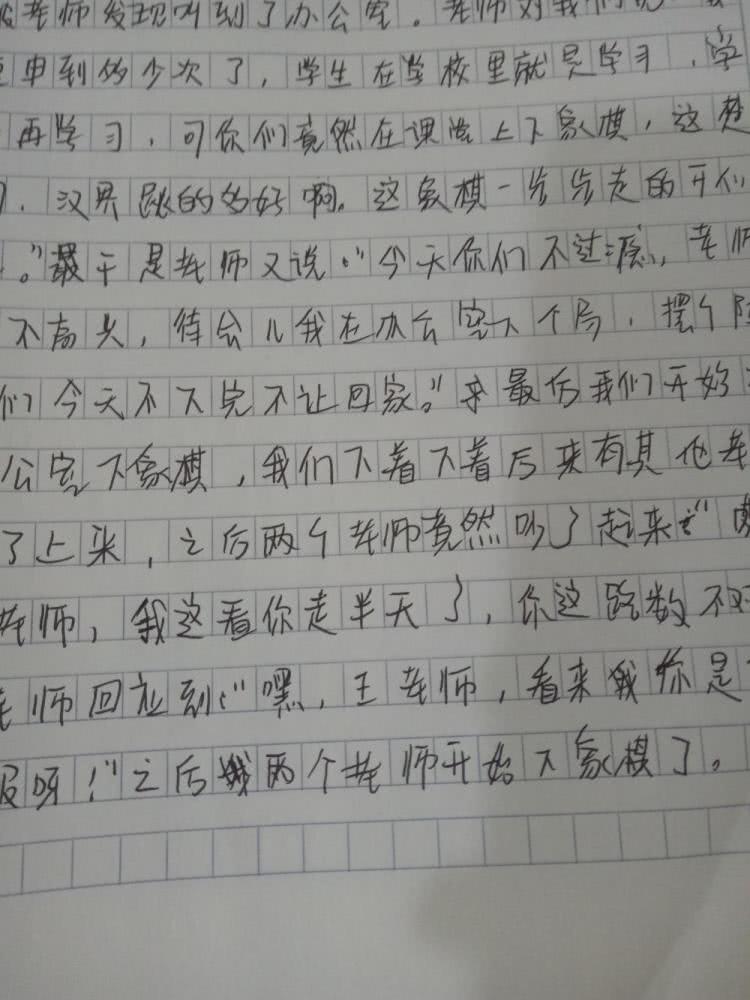 老师发现叫到了办公室。老师对我们说
申到多少次了，学生在学校里就是学习，学
再学习，可你们竟然在课堂上下象棋，这楚
汉界跳的多好啊。这象棋一步步走的开们
。”最于是老师又说：“今天你们不过瘾，老师
不高兴，待会儿我在办公室下个局，摆个
们今天不下完不让回家。”来最后我们开始
公室下象棋，我们下着下着后来有其他老
了上来，之后两个老师竟然吵了起来：“
老师，我这看你走半天了，你这路数不对
老师回应到：“嘿，王老师，看来我你是
服呀！”之后我两个老师开始下象棋了。